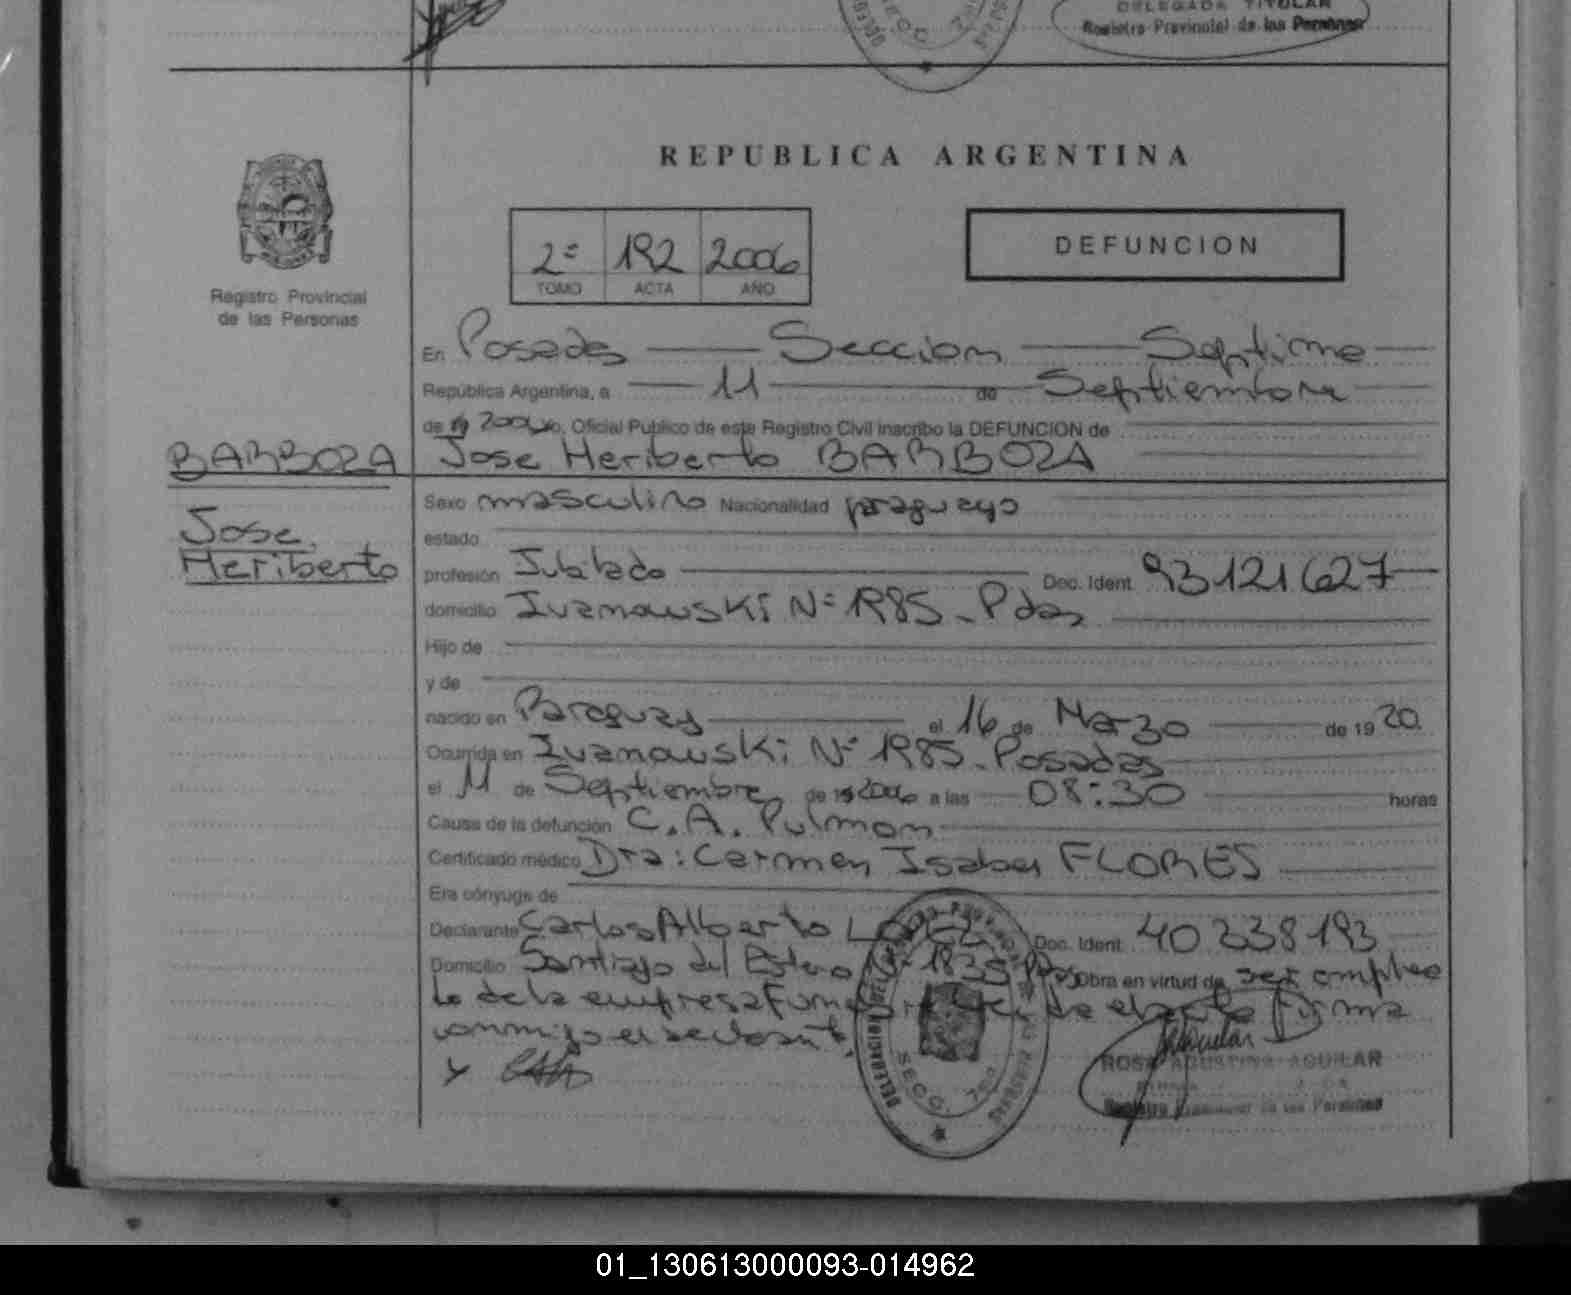 DELEGADA TITULAR
Registro Provincial de las Personas
REPUBLICA ARGENTINA
2º 192 2006
TOMO ACTA AÑO
DEFUNCION
Registro Provincial
de las Personas
En Posadas Seccion Septima
República Argentina, a 11 de Septiembre
de 19 2006 yo, Oficial Público de este Registro Civil inscribo la DEFUNCION de
BARBOZA Jose Heriberto BARBOZA
Jose
Heriberto
Sexo masculino Nacionalidad paraguayo
estado
profesión Jubilado Doc. Ident. 93121627
domicilio Ivanowski Nº 1985 - Pdas
Hijo de
y de
nacido en Paraguay el 16 de Marzo de 19 20.
Ocurrida en Ivanowski Nº 1985 - Posadas
el 11 de Septiembre de 19 2006 a las 08:30 horas
Causa de la defunción C. A. Pulmon
Certificado médico Dra: Carmen Isabel FLORES
Era cónyuge de
Declarante Carlos Alberto Doc. Ident. 40338193
Domicilio Santiago del Estero Nº 1835 Pdas Obra en virtud de ser emplea
do de la empresa firma
conmigo el declarante
y
DELEGACION
SECC. 7ma
ROSA AGUSTINA AGUILAR
Registro Provincial de las Personas
01_130613000093-014962